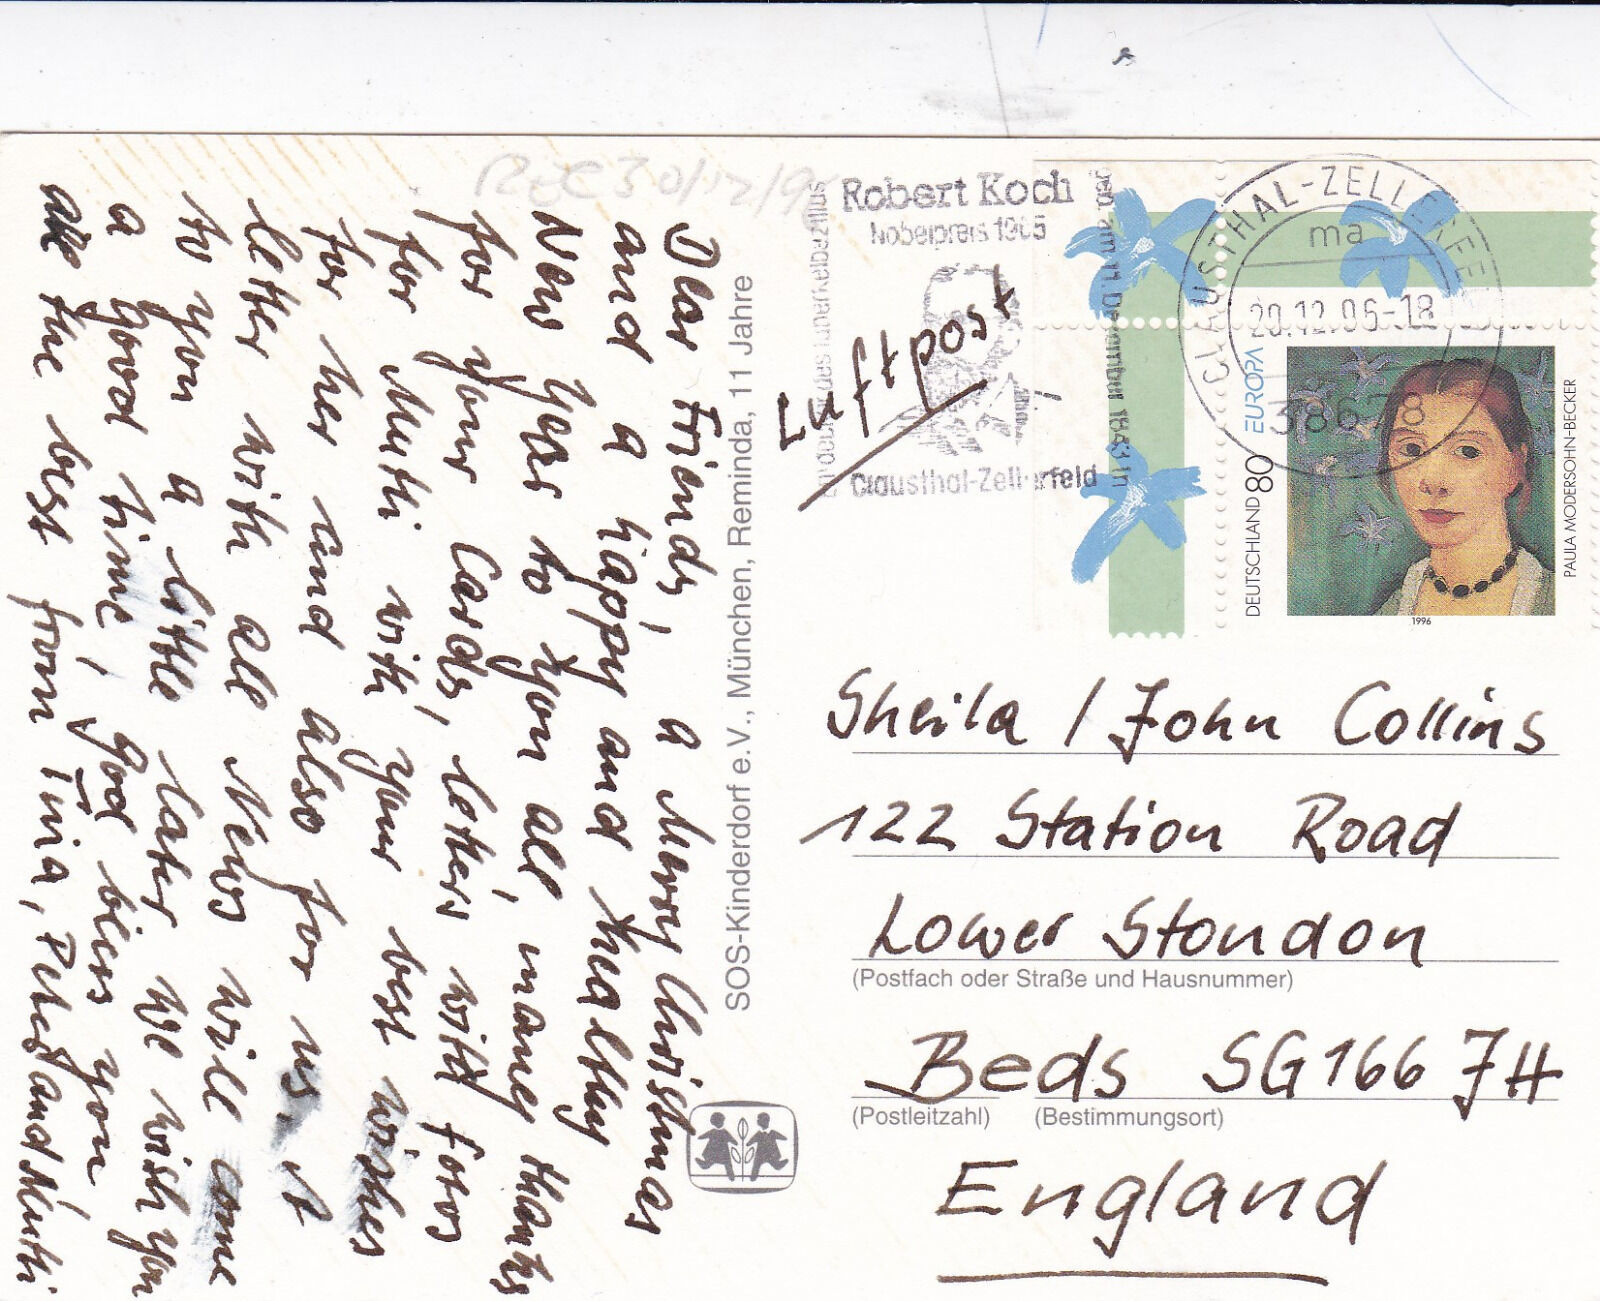 REC 30/12/96
Dear Friends, a Merry Christmas
and a happy and healthy
New Year to you all, many thanks
for your Cards, letters with fotos
for Mutti with your best wishes
for her and also for us. A
letter with all News will come
to you a little later. We wish you
a good time, God bless you
all the best from Tina, Peter and Mutti
SOS-Kinderdorf e.V., München, Reminda, 11 Jahre
Robert Koch
Nobelpreis 1905
Clausthal-Zellerfeld
Luftpost
CLAUSTHAL-ZELLERFELD
ma
20.12.96-18
38678
EUROPA
DEUTSCHLAND 80
PAULA MODERSOHN-BECKER
1996
Sheila / John Collins
122 Station Road
Lower Stondon
(Postfach oder Straße und Hausnummer)
Beds SG166JH
(Postleitzahl) (Bestimmungsort)
England